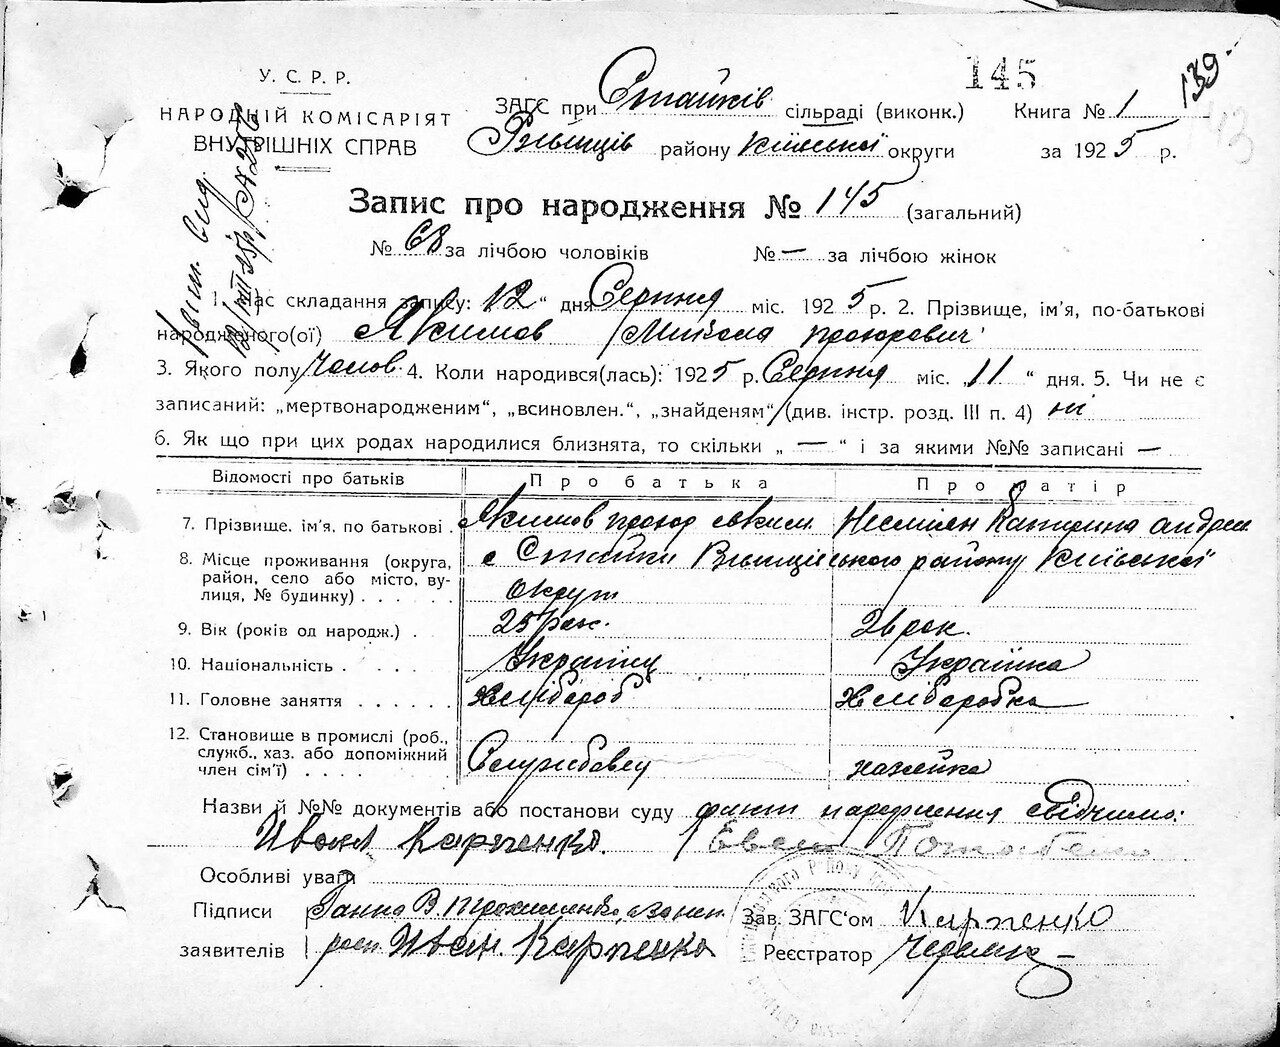 145
139
У. С. Р. Р.
НАРОДНІЙ КОМІСАРІЯТ
ВНУТРІШНІХ СПРАВ
ЗАГС при Стайків сільраді (виконк.) Книга № 1
району Київської округи за 1925 р.
Запис про народження № 145 (загальний)
№ 68 за лічбою чоловіків № — за лічбою жінок
1. Час складання запису: „12“ дня Серпня міс. 1925 р. 2. Прізвище, ім'я, по-батькові
народженого(ої) Якимов Микола Прохорович
3. Якого полу Чолов. 4. Коли народився(лась): 1925 р. Серпня міс. „11“ дня. 5. Чи не є
записаний: „мертвонародженим“, „всиновлен.“, „знайденям“ (див. інстр. розд. III п. 4) ні
6. Як що при цих родах народилися близнята, то скільки „ — “ і за якими №№ записані —
Відомості про батьків Про батька Про матір
7. Прізвище. ім'я, по батькові . Якимов Прохор Катерина Андре
8. Місце проживання (округа, район, село або місто, вулиця, № будинку) . . . . . с Стайки району Київської
округи
9. Вік (років од народж.) . 25 рок. 26 рок.
10. Національність . . . . Українец Українка
11. Головне заняття . . . . . . Хлібороб Хліборобка
12. Становище в промислі (роб., служб., хаз. або допоміжний член сім'ї) . . . . хазяйка
Назви й №№ документів або постанови суду факт народження свідчими:
Иван Карпенко.
Особливі уваги
Підписи Ганна В.
заявителів Иван Карпенко
Зав. ЗАГС'ом Карпенко
Реєстратор